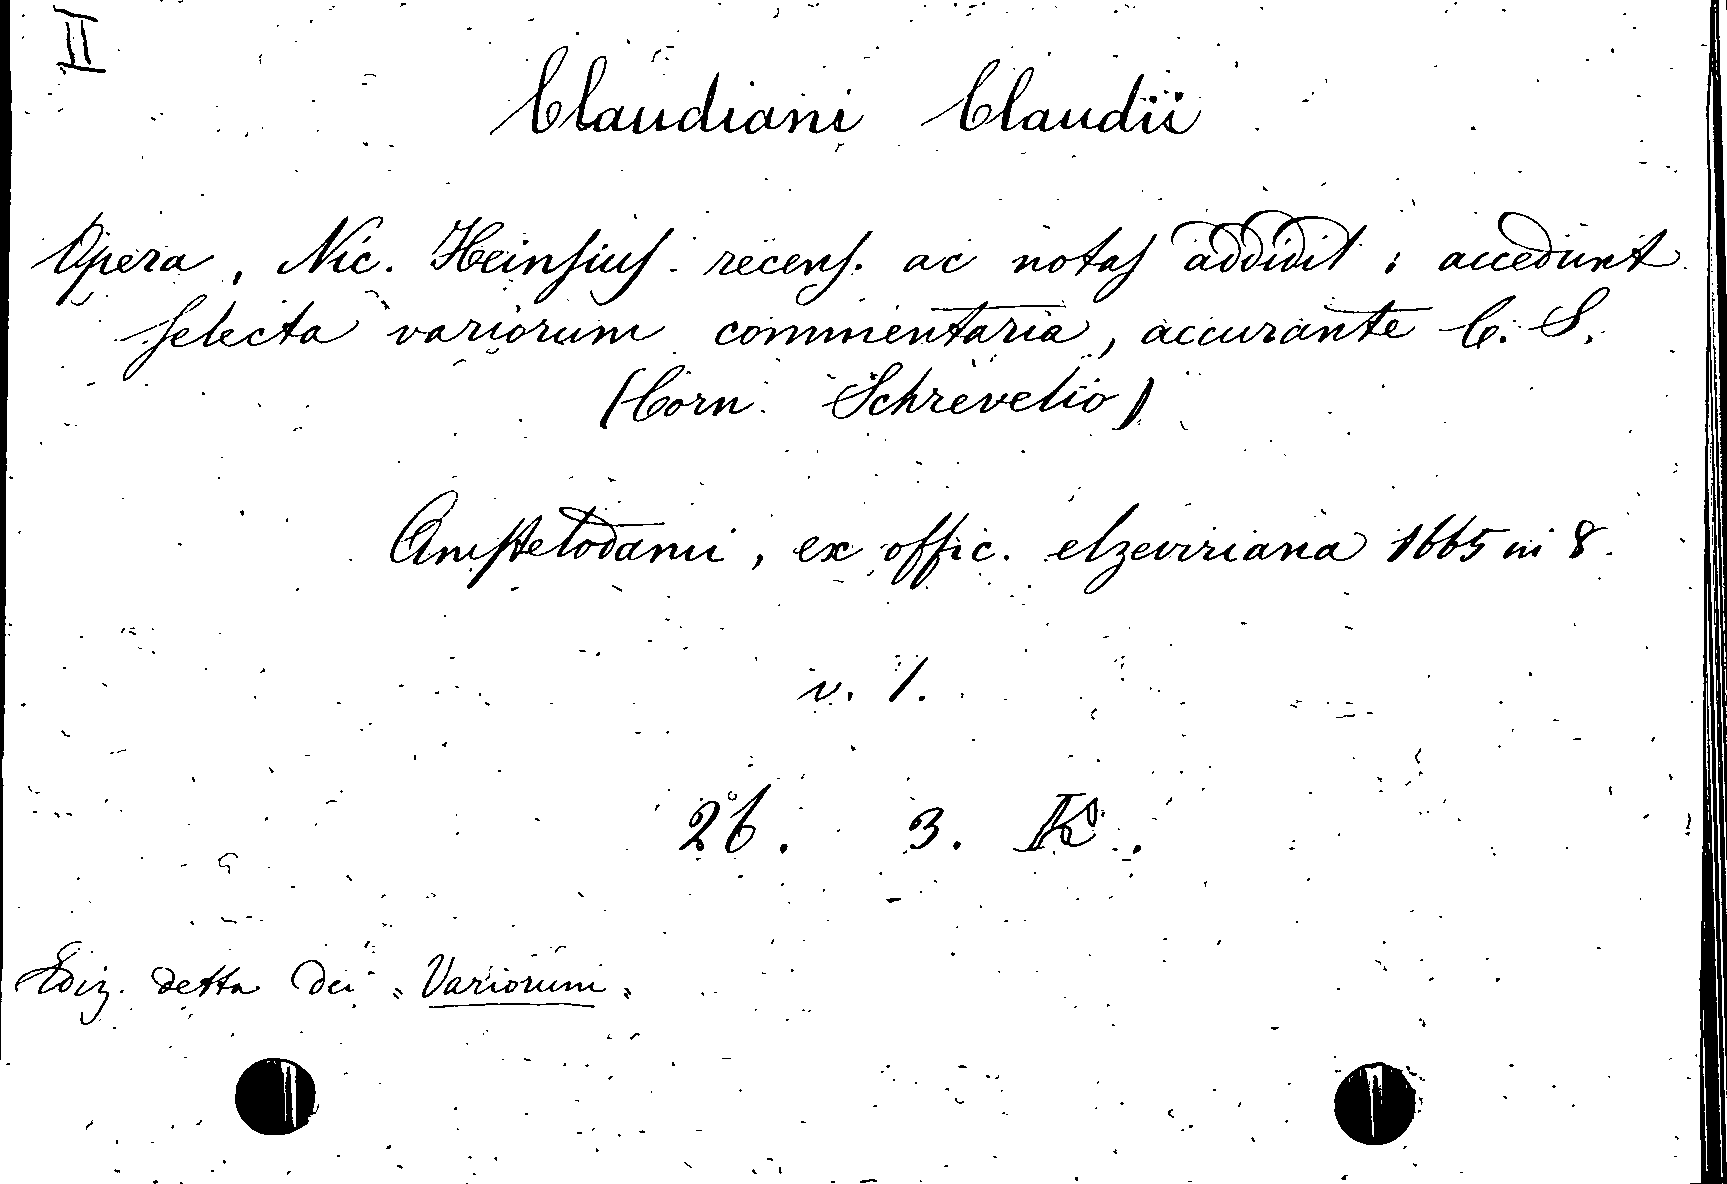 II
Claudiani Claudii
Opera, Nic. Heinsius recens. ac notas addidit; accedunt
selecta variorum commentaria, accurante C. S.
(Corn. Schrevelio)
Amstelodami, ex offic. elzeviriana 1665 in 8.
v. 1.
26. 3. K.
Ediz. detta dei "Variorum"